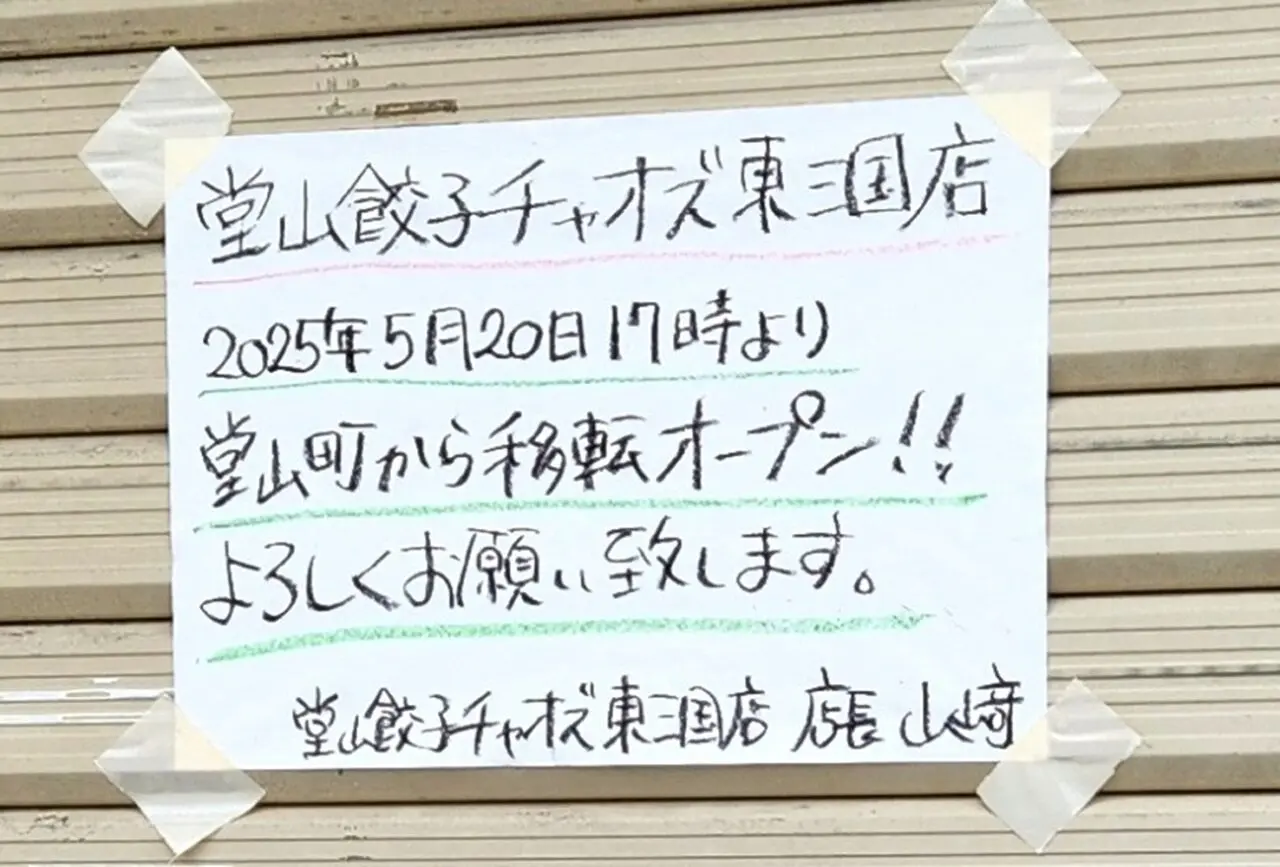 堂山餃子チャオズ東三国店
2025年5月20日17時より
堂山町から移転オープン!!
よろしくお願い致します。
堂山餃子チャオズ東三国店 店長 山﨑